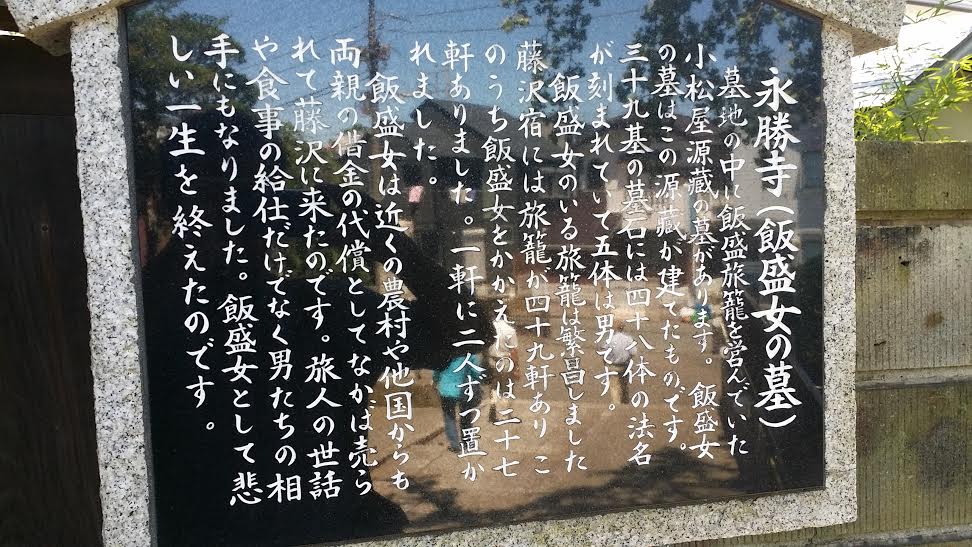 永勝寺(飯盛女の墓)
墓地の中に飯盛旅籠を営んでいた
小松屋源蔵の墓があります。飯盛女
の墓はこの源蔵が建てたものです。
三十九基の墓石には四十八体の法名
が刻まれていて五体は男です。
飯盛女のいる旅籠は繁昌しました
藤沢宿には旅籠が四十九軒あり こ
のうち飯盛女をかかえたのは二十七
軒ありました。一軒に二人ずつ置か
れました。
飯盛女は近くの農村や他国からも
両親の借金の代償としてなかば売ら
れて藤沢に来たのです。旅人の世話
や食事の給仕だけでなく男たちの相
手にもなりました。飯盛女として悲
しい一生を終えたのです。